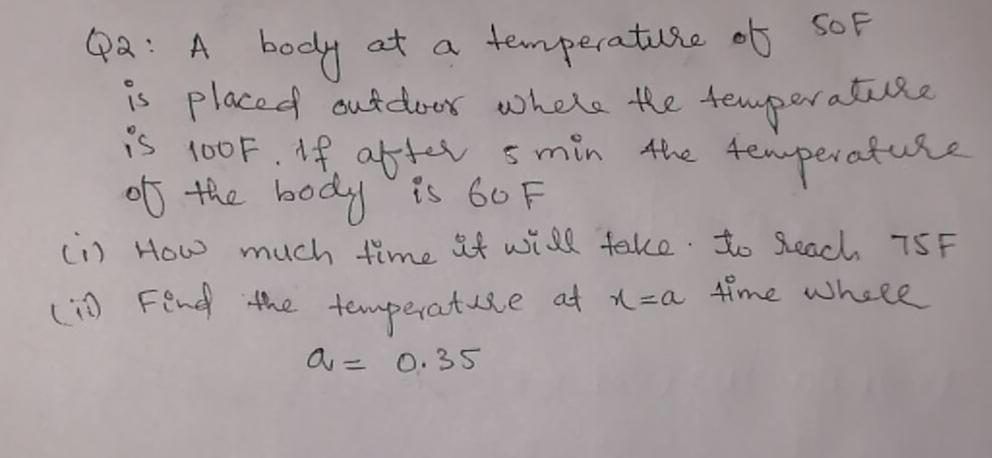 Q2: A body at a temperature of 50F
is placed outdoor where the temperature
is 100F. If after 5 min the temperature
of the body is 60F
(i) How much time it will take. to reach 75F
(ii) Find the temperature at x=a time where
a= 0.35